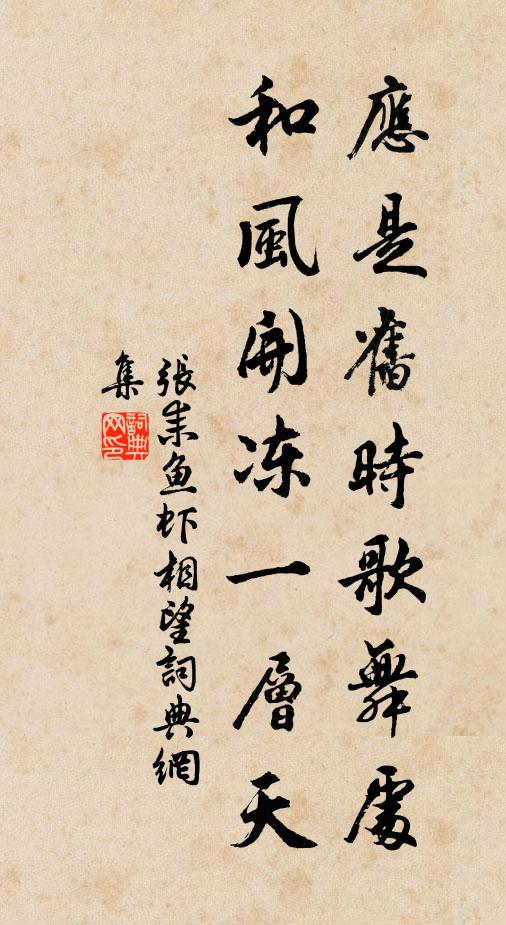 應是舊時歌舞處
和風開冻一層天
張耒鱼虾相望詞典網
集
詞典网印